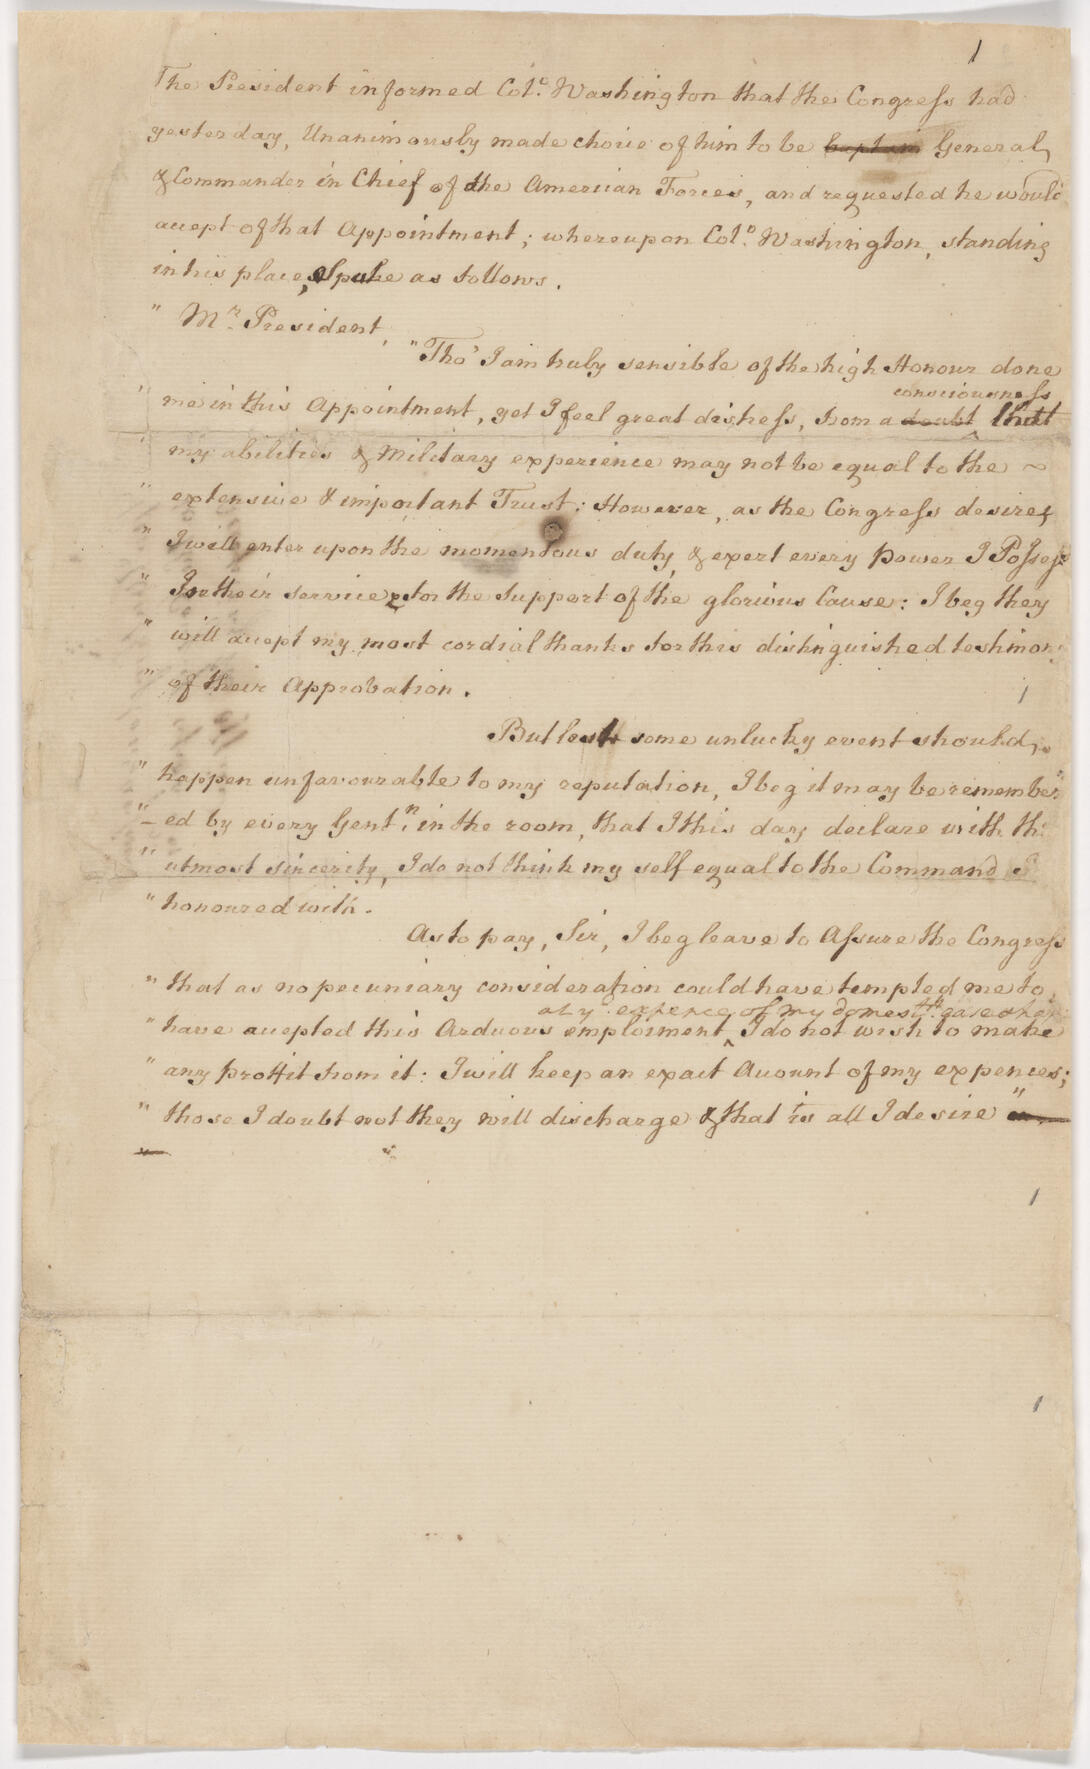 1
The President informed Colo. Washington that the Congress had
yesterday, Unanimously made choice of him to be General,
& Commander in Chief of the American Forces, and requested he would
accept of that Appointment; whereupon Colo. Washington, standing
in his place, Spake as follows.
" Mr. President,
"Tho' I am truly sensible of the high Honour done
consciousness
" me in this Appointment, yet I feel great distress, from a doubt that
" my abilities & Military experience may not be equal to the ~
" extensive & important Trust: However, as the Congress desires
" I will enter upon the momentous duty, & exert every power I Possess
" For their service & for the Support of the glorious Cause: I beg they
" will accept my most cordial thanks for this distinguished testimony
" of their Approbation.
But lest some unlucky event should,
" happen unfavourable to my reputation, I beg it may be remember
"–ed by every Gentn. in the room, that I this day declare with the
" utmost sincerity, I do not think my self equal to the Command I
" honoured with.
As to pay, Sir, I beg leave to Assure the Congress
" that as no pecuniary consideration could have tempted me to
at ye. expence of my domestk. ease &
" have accepted this Arduous emploiment ^ I do not wish to make
" any proffit from it: I will keep an exact Account of my expences;
" those I doubt not they will discharge & that is all I desire "